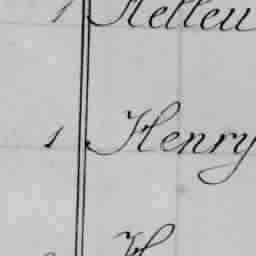 1 Helleu
1 Henry
H